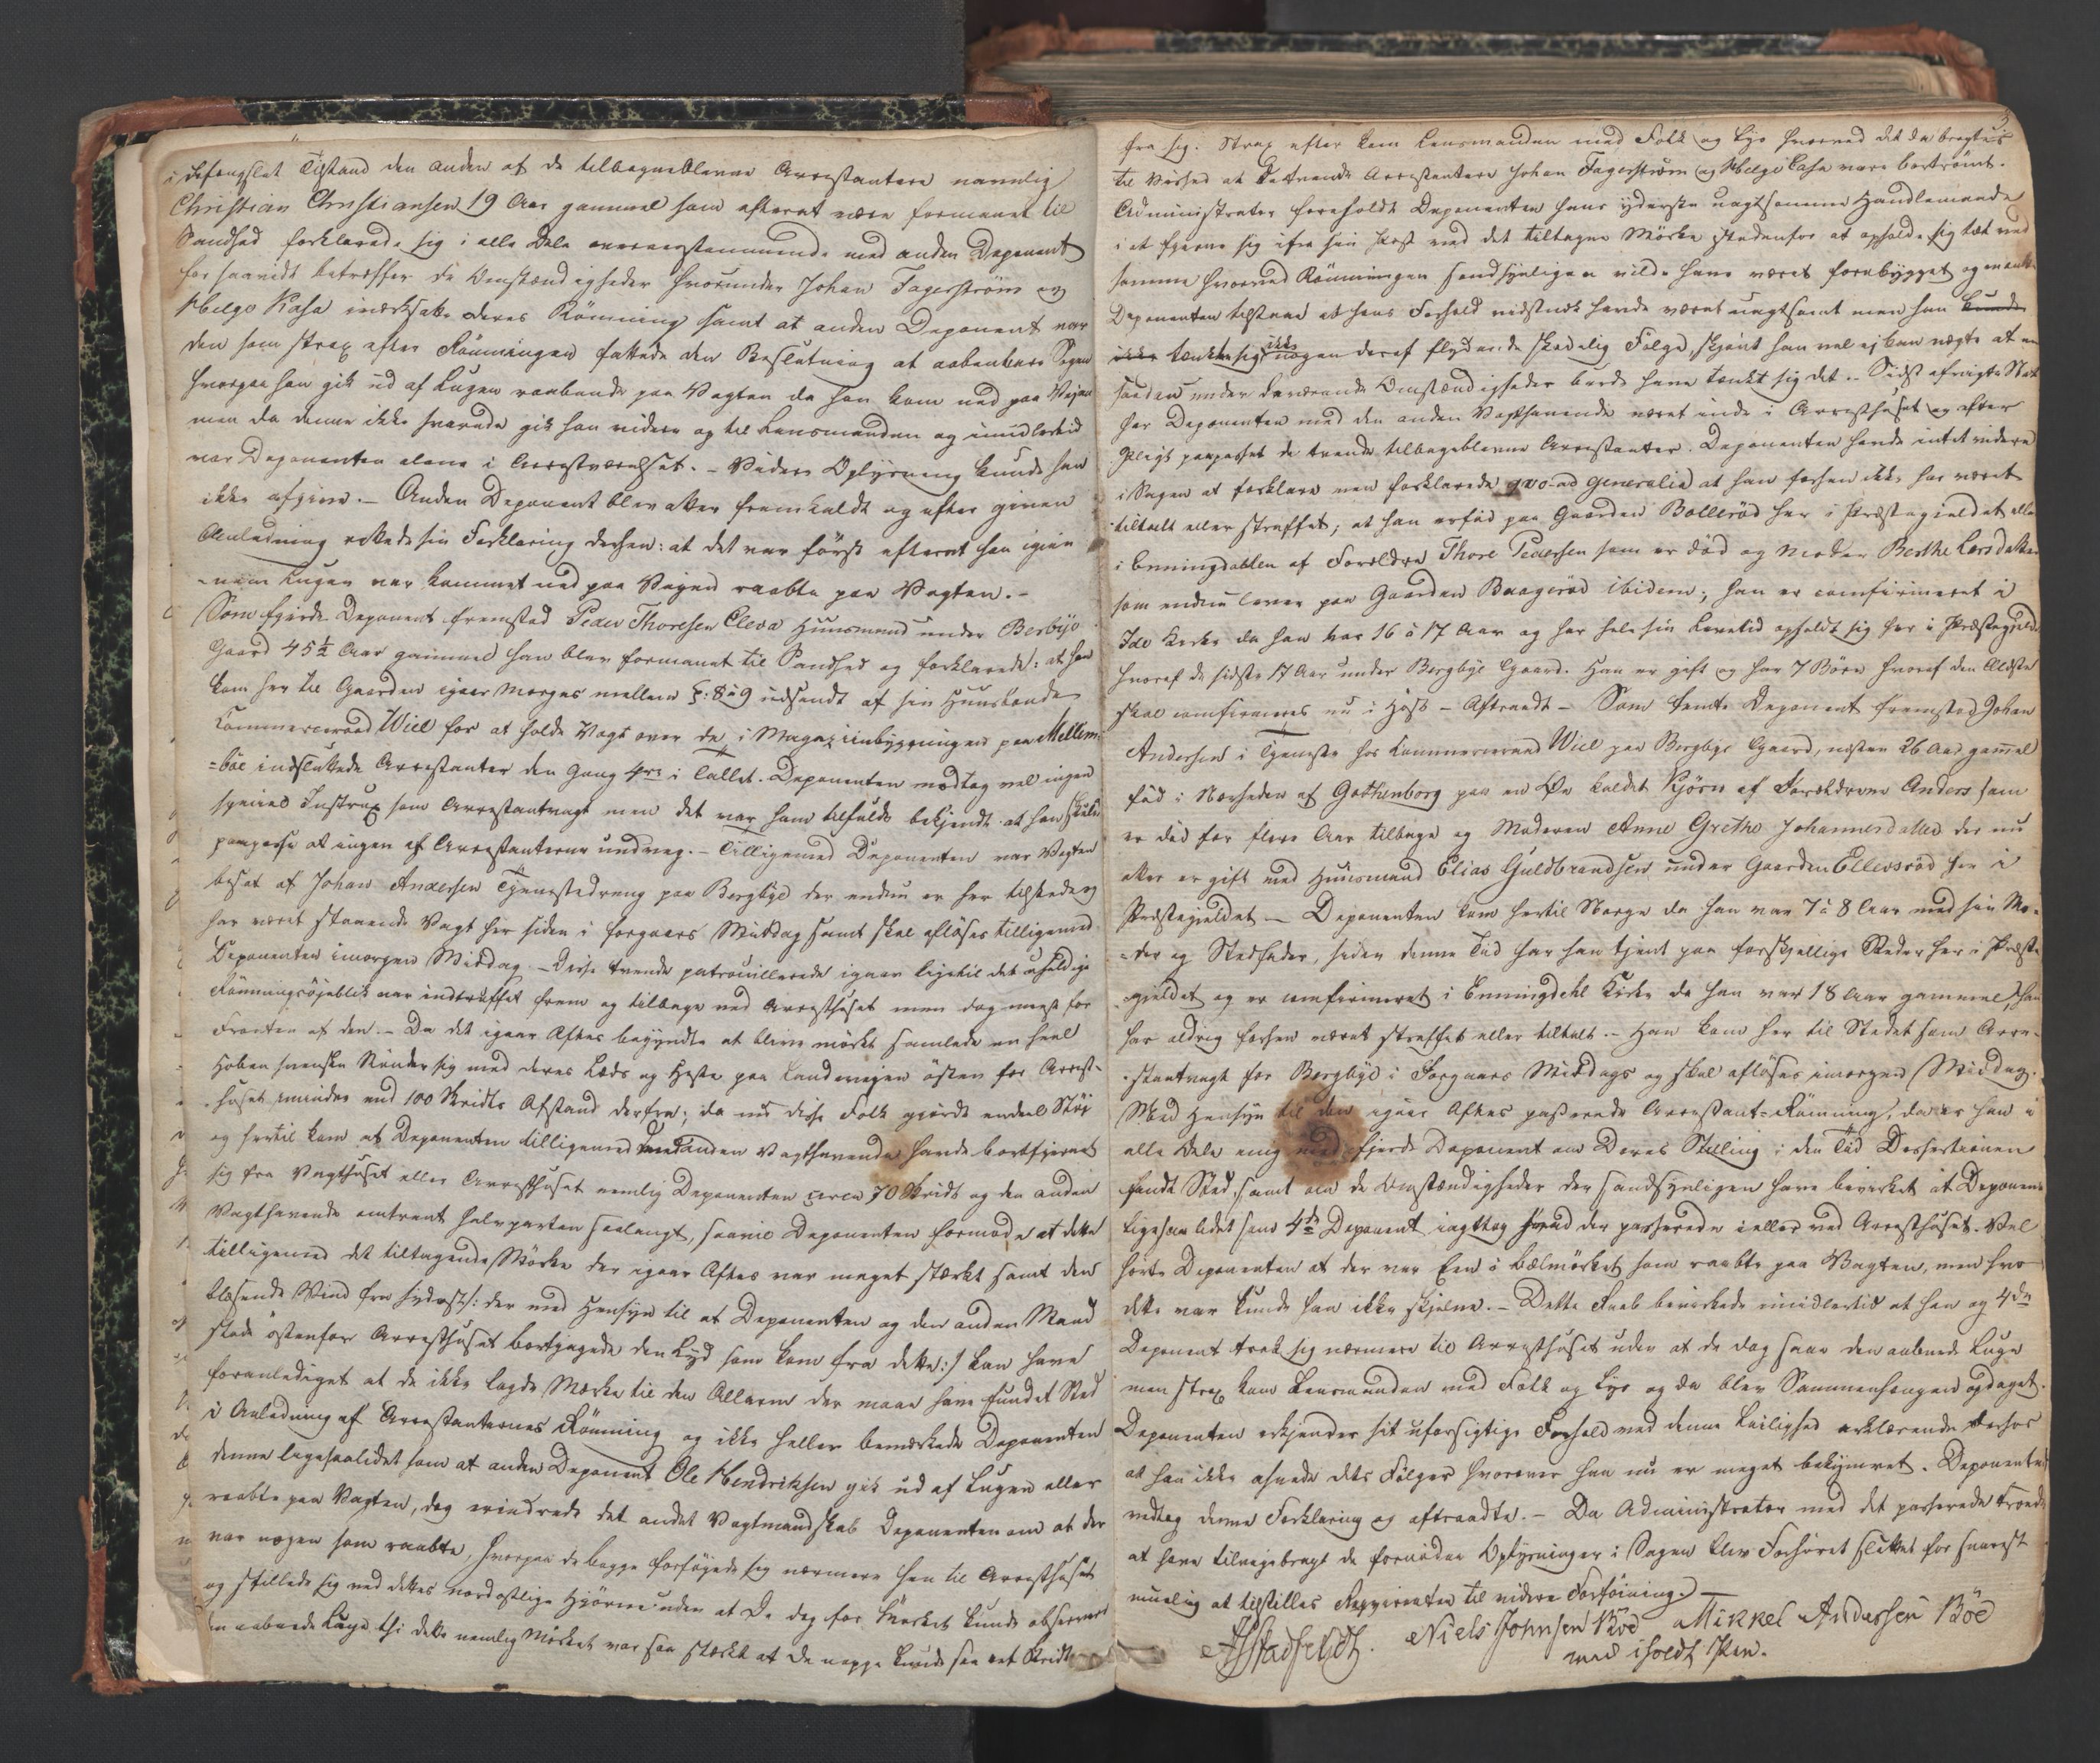 i defengslet Tilstand den anden af de tilbageblevne Arrestantere navnlig
Christian Christiansen 19 Aar gammel som efterat være formanet til
Sandhed forklarede sig i alle Dele overeenstemmende med anden Deponent
for saavidt betræffer de Omstændigheder hvorunder Johan Fagerström og
Helge Kasa iværksatte deres Römning samt at anden Deponent var
den som strax efter Römningen fattede den Beslutning at aabenbare Sagen
hvorpaa han gik ud af Lugen raabende paa Vagten da han kom ned paa Vejen
men da denne ikke svarede gik han videre og til Lensmanden og imidlertid
var Deponenten alene i Arrestværelset. - Videre Oplysning kunde han
ikke afgive. - Anden Deponent blev atter fremkaldt og efter given
Anledning rettede sin Forklaring derhen: at det var först efterat han igjen
=nem Lugen var kommet ned paa Vejen raabte paa Vagten. -
Som fjerde Deponent fremstod Peder Thoresen Eleva Huusmand under Berbye
Gaard 45½ Aar gammel han blev formanet til Sandhed og forklarede: at han
kom her til Gaarden igaar Morges mellem Kl: 8 à 9 udsendt af sin Huusbonde
Commerceraad Wiel for at holde Vagt over de i Magaziinbygningen paa Mellem
=böe indsluttede Arrestanter den Gang 4re i Tallet. Deponenten modtog vel ingen
speciel Instrux som Arrestantvagt men det var ham tilfulde bekjendt at han skulde
paapasse at ingen af Arrestanterne undveg. - Tilligemed Deponenten var Vagten
besat af Johan Andersen Tjenestedreng paa Bergbye der endnu er her tilstede og
har været staaende Vagt her siden i forgaars Middag samt skal aflöses tilligemed
Deponenten imorgen Middag - Disse tvende patrouillerede igaar ligetil det uheldige
Römningsöjeblik var indtruffet frem og tilbage ved Arresthuset men dog mest for
Fronten af den. - Da det igaar Aftes begyndte at blive mörkt samlede en heel
Hoben svenske Bönder sig med deres Læds og Heste paa Landevejen östen for Arrest-
huset mindre end 100 Skridts Afstand derfra; da nu disse Folk gjorde endeel Stöj
og hertil kom at Deponenten tilligemed den anden Vagthavende havde bortfjernet
sig fra Vagthuset eller Arresthuset nemlig Deponenten circa 70 Skridt og den anden
Vagthavende omtrent halvparten saalangt, saavel Deponenten formode at dette
tilligemed det tiltagende Mörke der igaar Aftes var meget stærkt samt den
blæsende Vind fra sydvest /: der med Hensyn til at Deponenten og den anden Mand
stode östenfor Arresthuset bortjagede den Lyd som kom fra dette :/ kan have
foranlediget at de ikke lagde Mærke til den Allarm der maae have fundet Sted
i Anledning af Arrestanternes Römning og ikke heller bemærkede Deponenten
denne ligesaalidet som at anden Deponent Ole Hendriksen gik ud af Lugen eller
raabte paa Vagten, dog erindrede det andet Vagtmandskab Deponenten om at der
var nogen som raabte, hvorpaa de begge forföjede sig nærmere hen til Arresthuset
og stillede sig ved dettes nordostlige Hjörne uden at De dog for Mörket kunde observere
den aabnede Luge thi dette nemlig Mörket var saa stærkt at De neppe kunde see eet Skridt
3
fra sig. Strax efter kom Lensmanden med Folk og Lys hvorved det da bragtes
til Vished at de tvende Arrestantere Johan Fagerström og Helge Kasa vare bortrömt.
Administrator foreholdt Deponenten hans yderste uagtsomme Handlemaade
i at fjerne sig ifra sin Post ved det tiltagne Mörke istedenfor at opholde sig tæt ved
samme hvorved Römningen sandsynligen vilde have været forebygget og maatte
Deponenten tilstaae at hans Forhold vidstnok havde været uagtsomt men han kunde
ikke tænkte sig ikke nogen deraf flydende skadelig Fölge, skjönt han vel ej kan nægte at en
saadan under daværende Omstændigheder burde have tænkt sig det. - Sidst afvigte Nat
har Deponenten med den anden Vagthavende været inde i Arresthuset og efter
Pligt paapasset de tvende tilbageblevne Arrestanter. Deponenten havde intet videre
i Sagen at forklare men forklarede qvo-ad generalia at han forhen ikke har været
tiltalt eller straffet; at han er föd paa Gaarden Bolleröd her i Præstegieldet eller
i Enningdahlen af Forældre Thore Pedersen som er död og Moder Berthe Larsdatter
som endnu lever paa Gaarden Baageröd ibidem; han er comfirmeret i
Ide Kirke da han var 16 à 17 Aar og har hele sin Levetid opholdt sig her i Præstegieldet
hvoraf de sidste 17 Aar under Bergbye Gaard. Han er gift og har 7 Börn hvoraf den Ældste
skal comfirmeres nu i Höst - Aftraadt - Som femte Deponent fremstod Johan
Andersen i Tjeneste hos Commerceraad Wiel paa Bergbye Gaard, næsten 26 Aar gammel
föd i Nærheden af Gothenborg paa en Öe kaldet Kjörn af Forældrene Anders som
er död for flere Aar tilbage og Moderen Anne Grethe Johannesdatter der nu
atter er gift med Huusmand Elias Guldbrandsen under Gaarden Ellevsröd her i
Præstegieldet - Deponenten kom hertil Norge da han var 7 à 8 Aar med sin Mo-
=der og Stedfader, siden denne Tid har han tjent paa forskjellige Steder her i Præste
gjeldet og er comfirmeret i Enningdehl Kirke da han var 18 Aar gammel, han
har aldrig forhen været straffet eller tiltalt. - Han kom her til Stedet som Arre-
stantvagt for Bergbye i Forgaars Middags og skal aflöses imorgen Middag.
Med Hensyn til den igaar Aftes passerede Arrestant-Römning, da er han i
alle Dele enig med fjerde Deponent om Deres Stilling i den Tid Dessertionen
fandt Sted, samt om de Omstændigheder der sandsynligen have bevirket at Deponenten
ligesaalidet som 4de Deponent iagttog hvad der passerede i eller ved Arresthuset. Vel
hörte Deponenten at der var Een i bælmörket som raabte paa Vagten, men hvo
dette var kunde han ikke skjelne. - Dette Raab bevirkede imidlertid at han og 4de
Deponent trak sig nærmere til Arresthuset uden at de dog saae den aabnede Luge
men strax kom Lensmanden med Folk og Lys og da blev Sammenhængen opdaget.
Deponenten erkjender sit uforsigtige Forhold ved denne Leilighed erklærende derhos
at han ikke ahnede dets Fölger hvorover han nu er meget bekymret. Deponenten
vedtog denne Forklaring og aftraadte. - Da Administrator med det passerede troede
at have tilvejebragt de fornödne Oplysninger i Sagen blev Forhöret sluttet for snarest
muelig at tilstilles Reqvirenten til videre Forföining. -
AStadfeldt. Niels Johnsen Böe Mikkel Andersen Böe
med iholdt Pen.